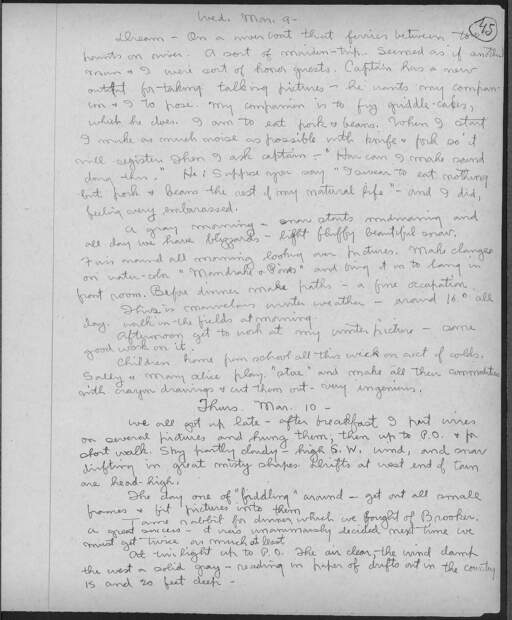 45
Wed. Mar. 9 -
Dream - On a river boat that ferries between two
points on river. A sort of maiden-trip. Seemed as if another
man & I were sort of honor guests. Captain has a new
outfit for taking talking pictures - he wants my compan-
ion & I to pose. My companion is to fry griddle-cakes,
which he does. I am to eat pork & beans. When I start
I make as much noise as possible with knife & fork so it
will register. Then I ask captain - "How can I make sound
doing this." He: Suppose you say "I swear to eat nothing
but pork & beans the rest of my natural life" - and I did,
feeling very embarassed.
A gray morning - snow starts midmorning and
all day we have blizzards - light fluffy beautiful snow.
I sit around all morning looking over pictures. Make changes
on water-color "Mandrake & Pines" and bring it in to hang in
front room. Before dinner make paths - a fine occupation.
This is marvelous winter weather - around 16° all
day. Walk in the fields at morning.
Afternoon get to work at my winter picture - some
good work on it.
Children home from school all this week on acct of colds.
Sally & Mary Alice play "store" and make all their commodities
with crayon drawings & cut them out - very ingenious.
Thurs. Mar. 10 -
We all get up late - after breakfast I put wires
on several pictures and hung them; then up to P.O. & for
short walk. Sky partly cloudy - high S.W. wind, and snow
drifting in great misty shapes. Drifts at west end of town
are head-high.
The day one of "fiddling" around - get out all small
frames & fit pictures into them.
Tame rabbit for dinner which we bought of Brooker.
A great success - it was unanimously decided next time we
must get twice as much at least.
At twilight up to P.O. The air clear, the wind damp
the west a solid gray - reading in paper of drifts out in the country
15 and 20 feet deep -